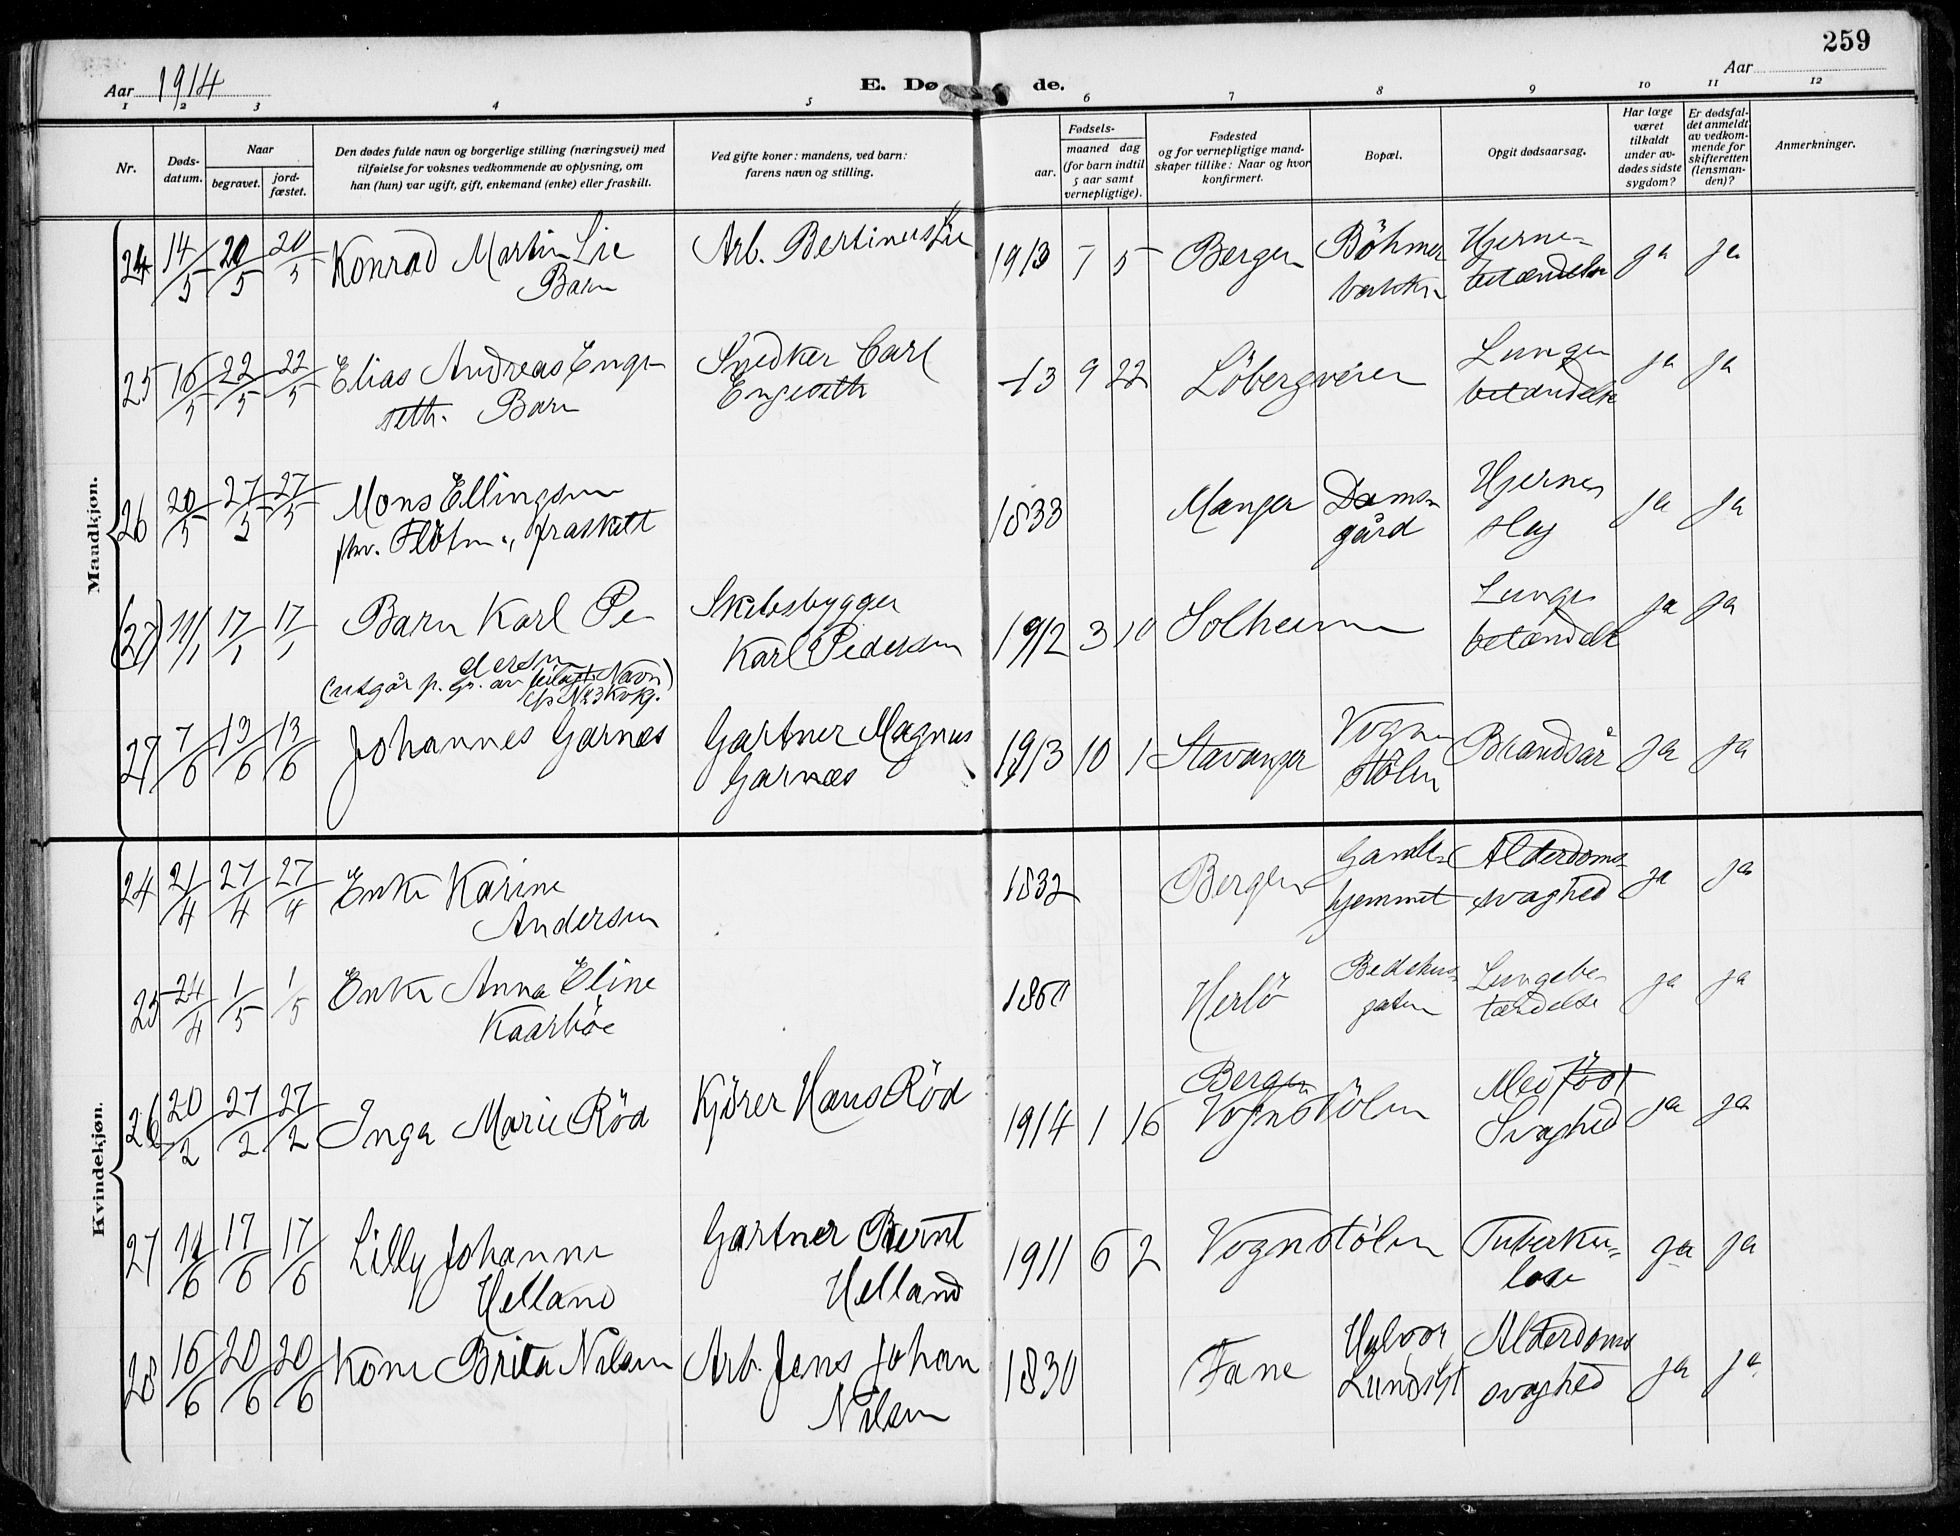 259
Aar 1914
E. Dø de.
Aar
1 2 3 4 5 6 7 8 9 10 11 12
Nr.
Døds-
datum.
Naar
begravet.
jord-
fæstet.
Den dødes fulde navn og borgerlige stilling (næringsvei) med
tilføielse for voksnes vedkommende av oplysning, om
han (hun) var ugift, gift, enkemand (enke) eller fraskilt.
Ved gifte koner: mandens, ved barn:
farens navn og stilling.
Fødsels-
aar.
maaned dag
(for barn indtil
5 aar samt
vernepligtige).
Fødested
og for vernepligtige mand-
skaper tillike: Naar og hvor
konfirmert.
Bopæl.
Opgit dødsaarsag.
Har læge
været
tilkaldt
under av-
dødes sidste
sygdom?
Er dødsfal-
det anmeldt
av vedkom-
mende for
skifteretten
(lensman-
den)?
Anmerkninger.
Mandkjøn.
24 14/5 20/5 20/5 Konrad Martin Lie Arb. Bertinus Lie 1913 7 5 Bergen Böhmer Hjerne- ja ja
Barn betændelse
25 16/5 22/5 22/5 Elias Andreas Enge- Snedker Carl -13 9 22 Löbergveien Lunge ja ja
seth. Barn Engeseth betændelse
26 20/5 27/5 27/5 Mons Ellingsen 1833 Manger Dams- Hjerne ja ja
fhv. fraskilt gård slag
(27) 11/1 17/1 17/1 Barn Karl Pe- Skibsbygger 1912 3 10 Solheim Lunge ja ja
dersen Karl Pedersen betændelse
(utgår p. gr. av Navn)
27 7/6 13/6 13/6 Johannes Garnæs Gartner Magnus 1913 10 1 Stavanger Vogn- Brandsår ja ja
Garnæs stölen
Kvindekjøn.
24 21/4 27/4 27/4 Enke Karine 1832 Bergen Gamle- Alderdoms- ja ja
Andersen hjemmet svaghed
25 24/4 1/5 1/5 Enke Anna Eline Herlö Bedehus- Lungebe- ja ja
Kaarböe gaten tændelse
26 20/2 27/2 27/2 Inga Marie Röd Kjörer Hans Röd 1914 1 16 Bergen Medfödt ja ja
Vognstölen Svaghed
27 11/6 17/6 17/6 Lilly Johanne Gartner Bernt 1911 6 2 Vognstölen Tuberku- ja ja
Helland Helland lose
28 16/6 20/6 20/6 Kone Brita Nilsen Arb. Jens Johan 1830 Fane Halvor Alderdoms ja ja
Nilsen svaghed